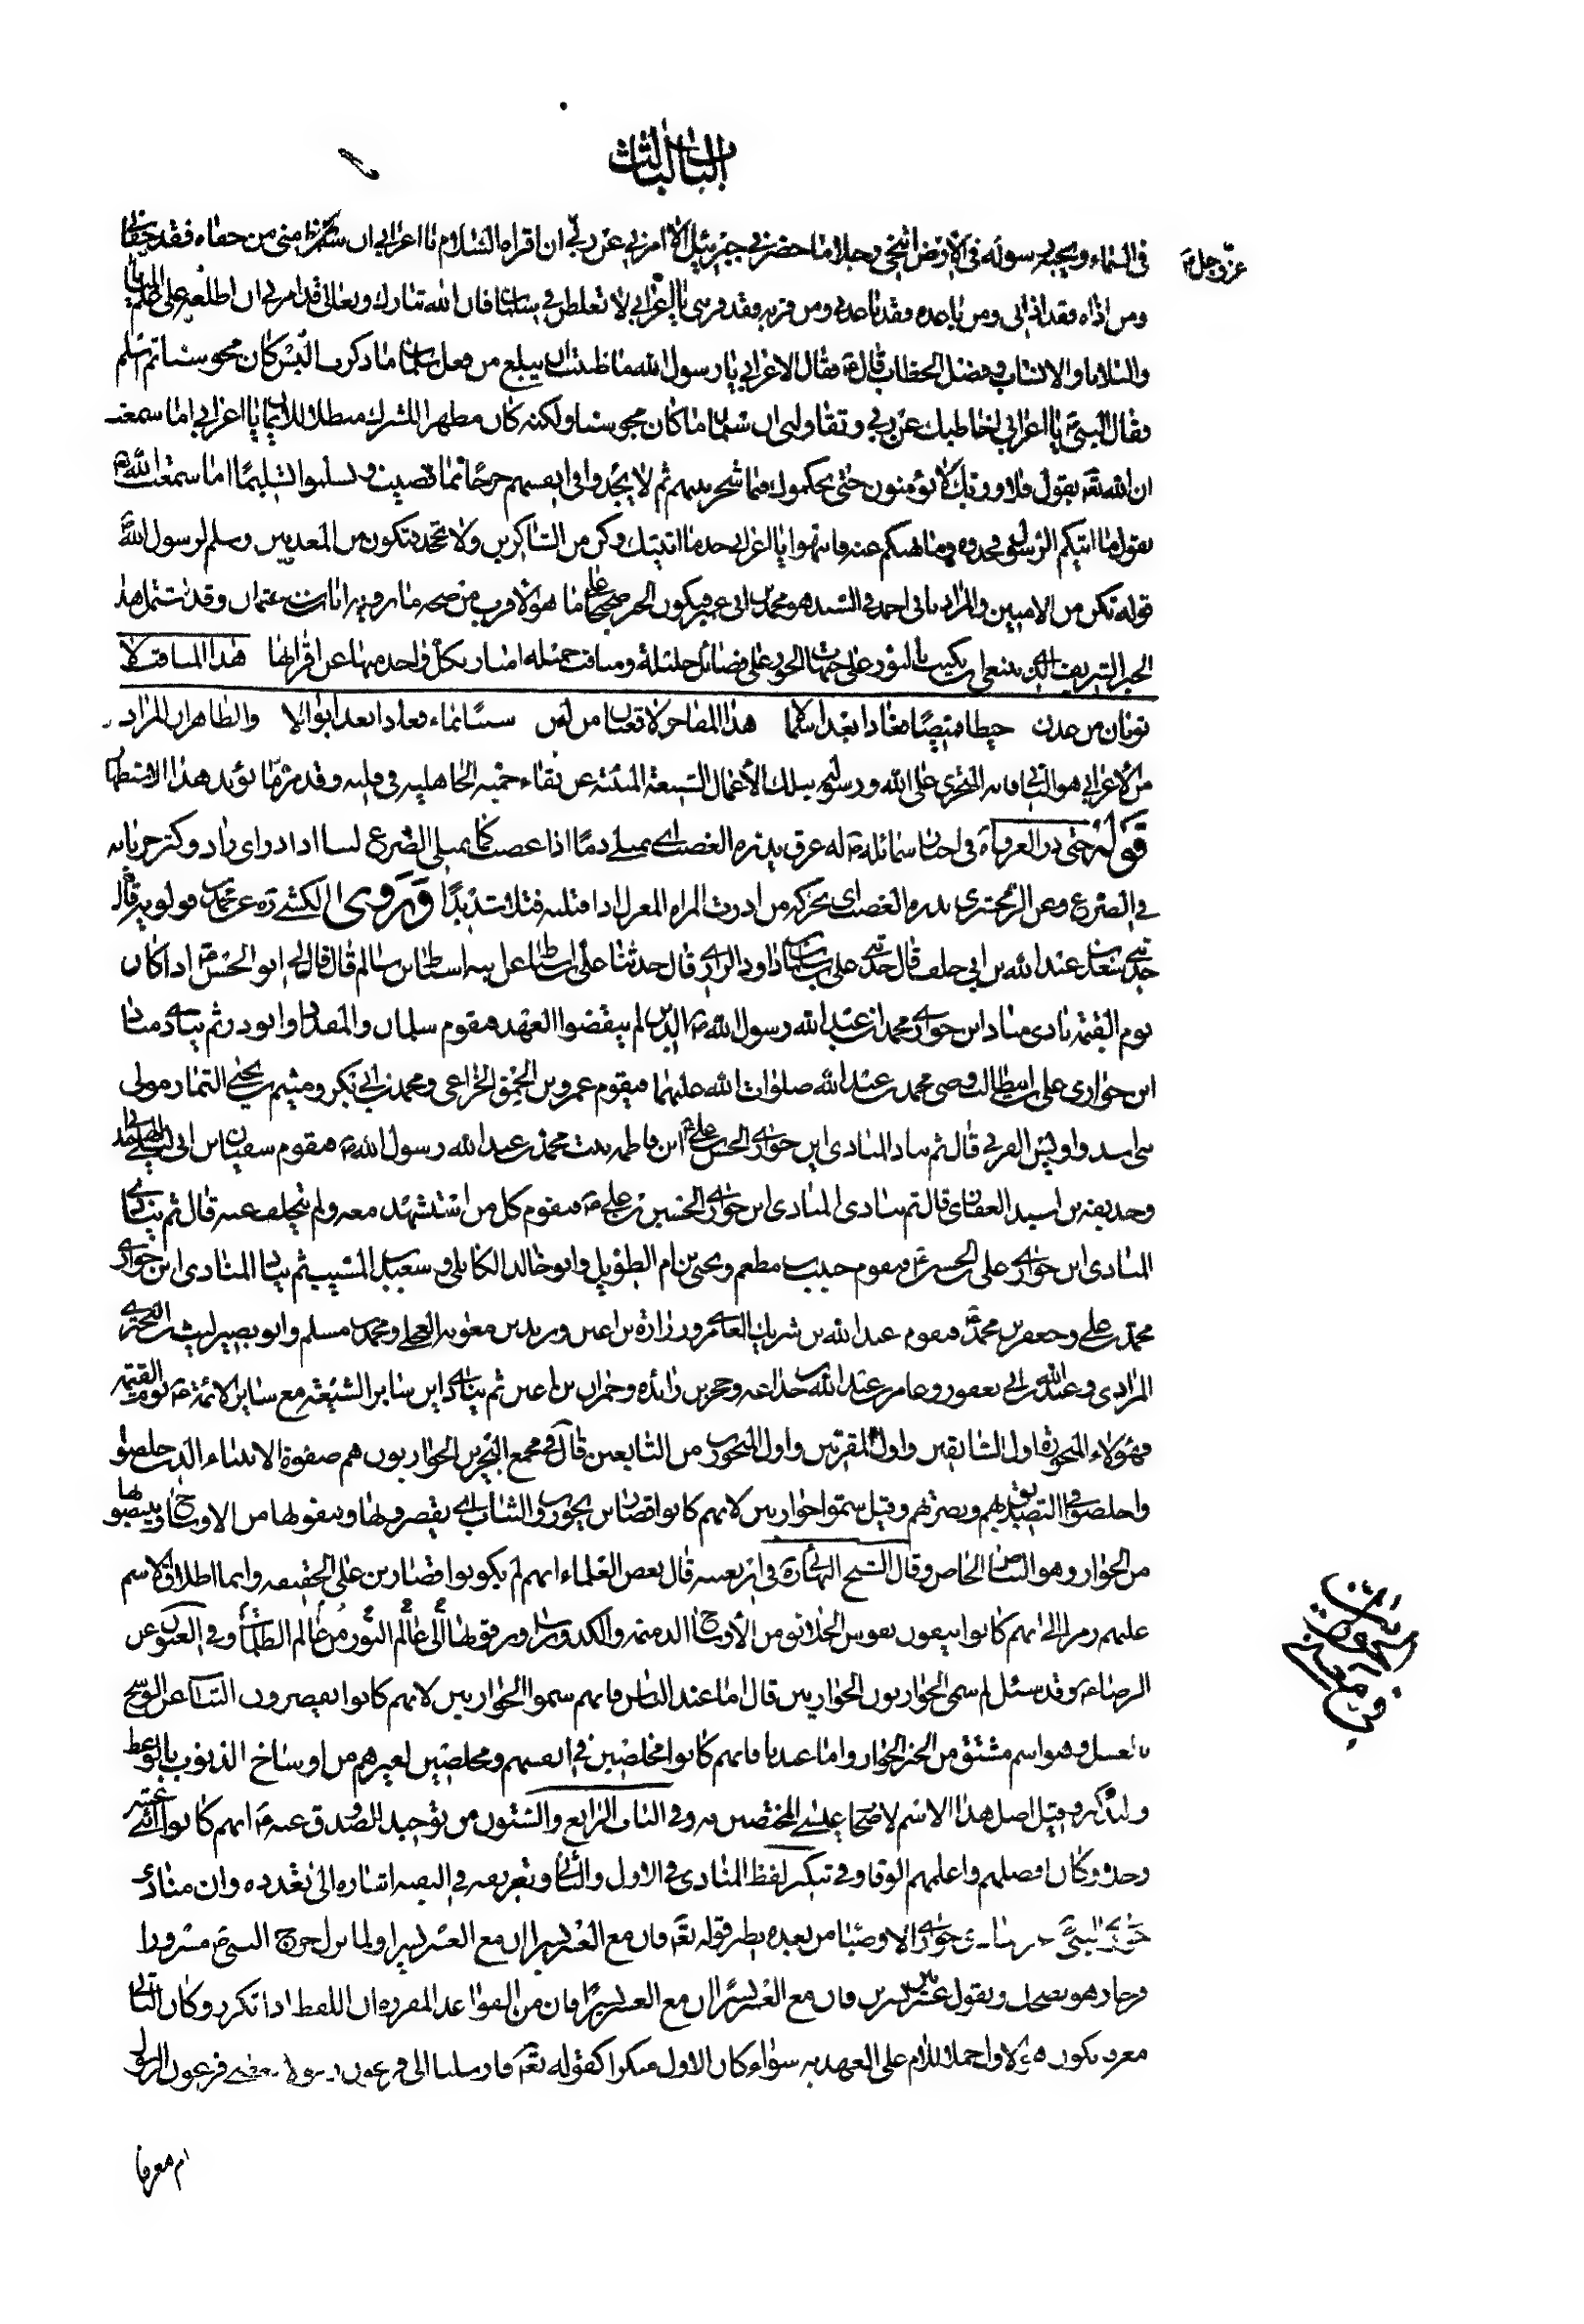 الباب الثالث
في السماء ويحبه رسوله في الأرض اتتخطى رجلا ما حضرني جبرئيل الا امرني عن ربي ان اقرأه السلام يا اعرابي ان سلمان مني من جفاه فقد جفاني
عز وجل
ومن اذاه فقد اذاني ومن باعده فقد باعدني ومن قربه فقد قربني يا اعرابي لا تغلطن في سلمان فان الله تبارك وتعالى قد امرني ان اطلعه على علم المنايا
والبلايا والانساب وفصل الخطاب قال فقال الاعرابي يا رسول الله ما ظننت ان يبلغ من فعل سلمان ما ذكرت اليس كان مجوسيا ثم اسلم
فقال النبي يا اعرابي اخاطبك عن ربي وتقاولني ان سلمان ما كان مجوسيا ولكنه كان مظهرا للشرك مبطنا للايمان يا اعرابي اما سمعت
ان الله تعه يقول فلا وربك لا يؤمنون حتى يحكموك فيما شجر بينهم ثم لا يجدوا في انفسهم حرجا مما قضيت ويسلموا تسليما اما سمعت الله
يقول ما اتيكم الرسول فخذوه وما نهيكم عنه فانتهوا يا اعرابي خذ ما اتيتك وكن من الشاكرين ولا تجحد فتكون من المعذبين وسلم لرسول الله
قوله تكن من الامنين والمراد بابي احمد في السند هو محمد بن ابي عمير فيكون الخبر صحيحا على ما هو الاقرب من صحة ما رويه ابان بن عثمان وقد اشتمل هذا
الخبر الشريف الذي ينبغي ان يكتب بالنور على جبهات الحور على فضائل جليلة ومناقب جميلة امتاز بكل واحد منها عن اقرانها هذا المناقب لا
ثوبان من عدن خيطا قميصا فعادا بعد اسمالا هذا المفاخر لا قعبان من لبن شيبا بماء فعادا بعد ابوالا والظاهر ان المراد
من الاعرابي هو الثاني فانه المجري على الله ورسوله بتلك الاعمال الشنيعة المنبئة عن بقاء حمية الجاهلية في قلبه وقد مر ما يؤيد هذا الاستظهار
قوله حتى در العرق اه في اخبار شمائله له عرق يدره الغضب اي يمتلي دما اذا غضب كما يمتلي الضرع لبنا اذا در اي زاد وكثر جريانه
في الضرع وعن الزمخشري يدره الغضب اي يحركه من ادرت المراة المغزل اذا فتلته فتلا شديدا وروى الكشي ره عن محمد بن قولويه قال
حدثني سعد بن عبد الله بن ابي خلف قال حدثني علي بن سليمان بن داود الرازي قال حدثنا علي بن اسباط عن ابيه اسباط بن سالم قال قال لي ابو الحسن اذا كان
يوم القيمة نادى مناد اين حواري محمد بن عبد الله رسول الله الذين لم ينقضوا العهد فيقوم سلمان والمقداد وابو ذر ثم ينادي مناد
اين حواري علي بن ابيطالب وصي محمد بن عبد الله صلوات الله عليهما فيقوم عمرو بن الحمق الخزاعي ومحمد بن ابي بكر وميثم بن يحيى التمار مولى
بني اسد واويس القرني قال ثم يناد المنادي اين حواري الحسن بن علي ابن فاطمة بنت محمد بن عبد الله رسول الله فيقوم سفيان بن ابي ليلى الهمداني
وحذيفة بن اسيد الغفاري قال ثم ينادي المنادي اين حواري الحسين بن علي فيقوم كل من استشهد معه ولم يتخلف عنه قال ثم ينادي
المنادي اين حواري علي بن الحسين فيقوم جبير بن مطعم ويحيى بن ام الطويل وابو خالد الكابلي وسعيد بن المسيب ثم يناد المنادي اين حواري
محمد بن علي وجعفر بن محمد فيقوم عبد الله بن شريك العامري وزرارة بن اعين وبريد بن معوية العجلي ومحمد بن مسلم وابو بصير ليث بن البختري
المرادي وعبد الله بن ابي يعفور وعامر بن عبد الله بن جذاعة وحجر بن زائدة وحمران بن اعين ثم ينادي اين سائر الشيعة مع سائر الائمة يوم القيمة
فهؤلاء المتحورة اول السابقين واول المقربين واول المتحورين من التابعين قال في مجمع البحرين الحواريون هم صفوة الانبياء الذين خلصوا
واخلصوا في التصديق بهم ونصرتهم وقيل سموا حواريين لانهم كانوا قصارين يحورون الثياب اي يقصرونها وينقونها من الاوساخ ويبيضونها
من الحوار وهو البياض الخالص وقال الشيخ البهائي ره في اربعينه قال بعض العلماء انهم لم يكونوا قصارين على الحقيقة وانما اطلاق الاسم
عليهم رمزا الى انهم كانوا ينقون نفوس الخلائق من الاوساخ الذميمة والكدورات ويرقونها الى عالم النور من عالم الظلمات وفي العيون عن
الرضا وقد سئل لم سمي الحواريون الحواريين قال اما عند الناس فانهم سموا الحواريين لانهم كانوا يقصرون الثياب عن الوسخ
بالغسل وهو اسم مشتق من الخبز الحوار واما عندنا فانهم كانوا مخلصين في انفسهم ومخلصين لغيرهم من اوساخ الذنوب بالوعظ
والتذكير وقيل اصل هذا الاسم لاصحاب عيسى المختصين به وفي الباب الرابع والستون من توحيد الصدوق عنه انهم كانوا اثني عشر
رجلا وكان افضلهم واعلمهم الوقا وفي تنكير لفظ المنادي في الاول والثاني وتعريفه في البقية اشارة الى تعدده وان منادي
حواري النبي حواري الاوصياء من بعده نظير قوله تعه فان مع العسر يسرا ان مع العسر يسرا ولما نزل خرج النبي مسرورا
فرحا وهو يضحك ويقول لن يغلب عسر يسرين فان مع العسر يسرا ان مع العسر يسرا فان من القواعد المقررة ان اللفظ اذا تكرر وكان الثاني
معرفة يكون هو الاول حملا للام على العهد به سواء كان الاول منكرا كقوله تعه فارسلنا الى فرعون رسولا فعصى فرعون الرسول
ام معرفا